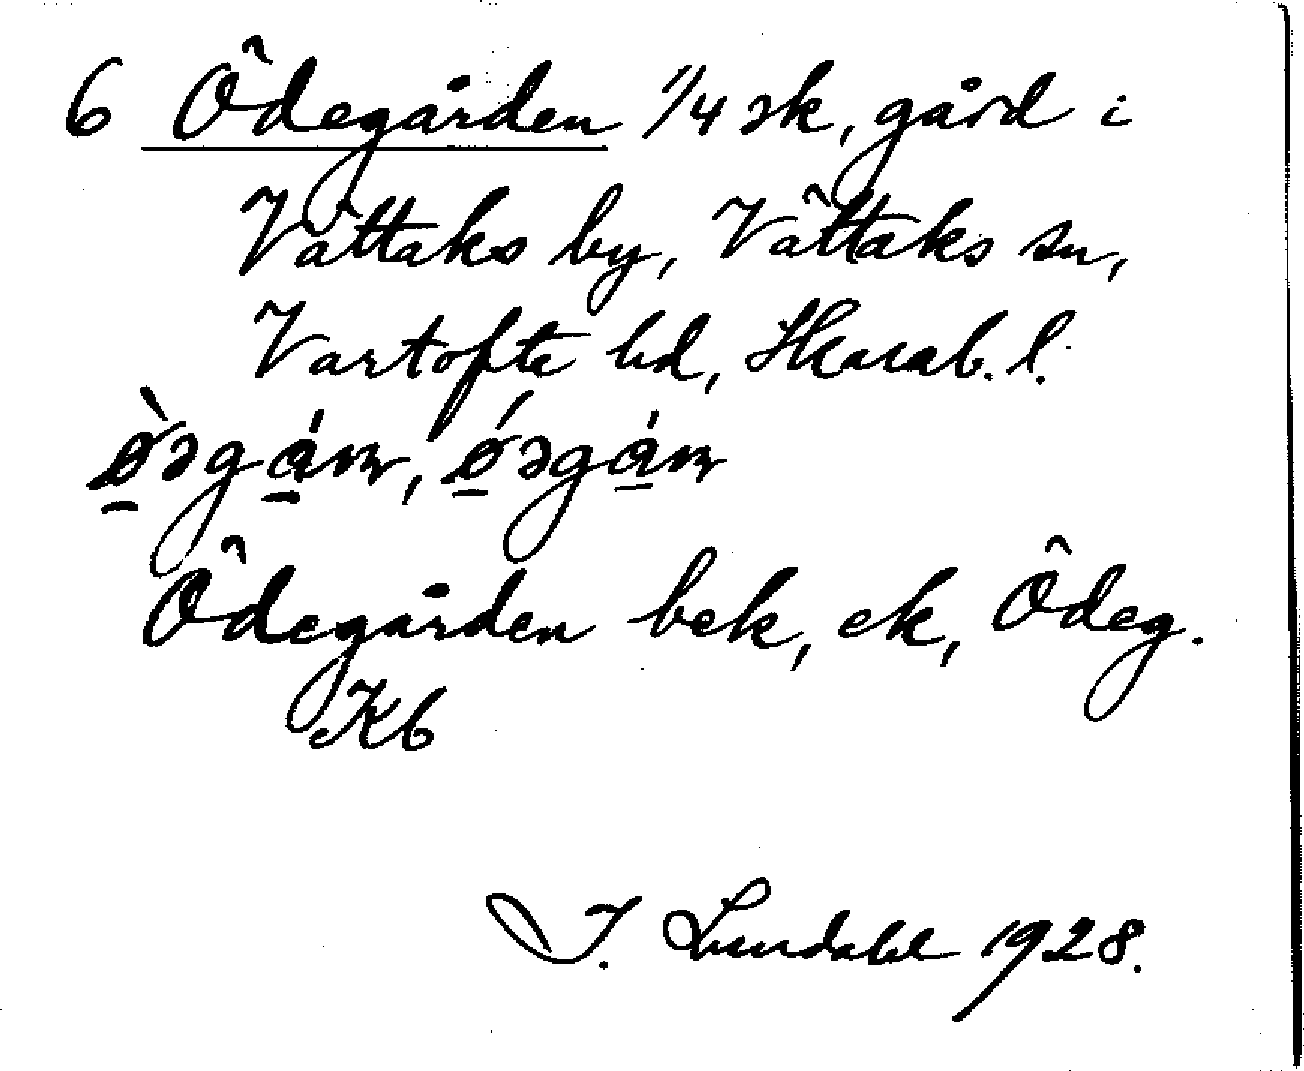 6 Ödegården 1/4 sk, gård i
Vättaks by, Vättaks sn,
Vartofte hd, Skarab. l.
Ödegården bek, ek, Ödeg.
Kb
I. Lundahl 1928.